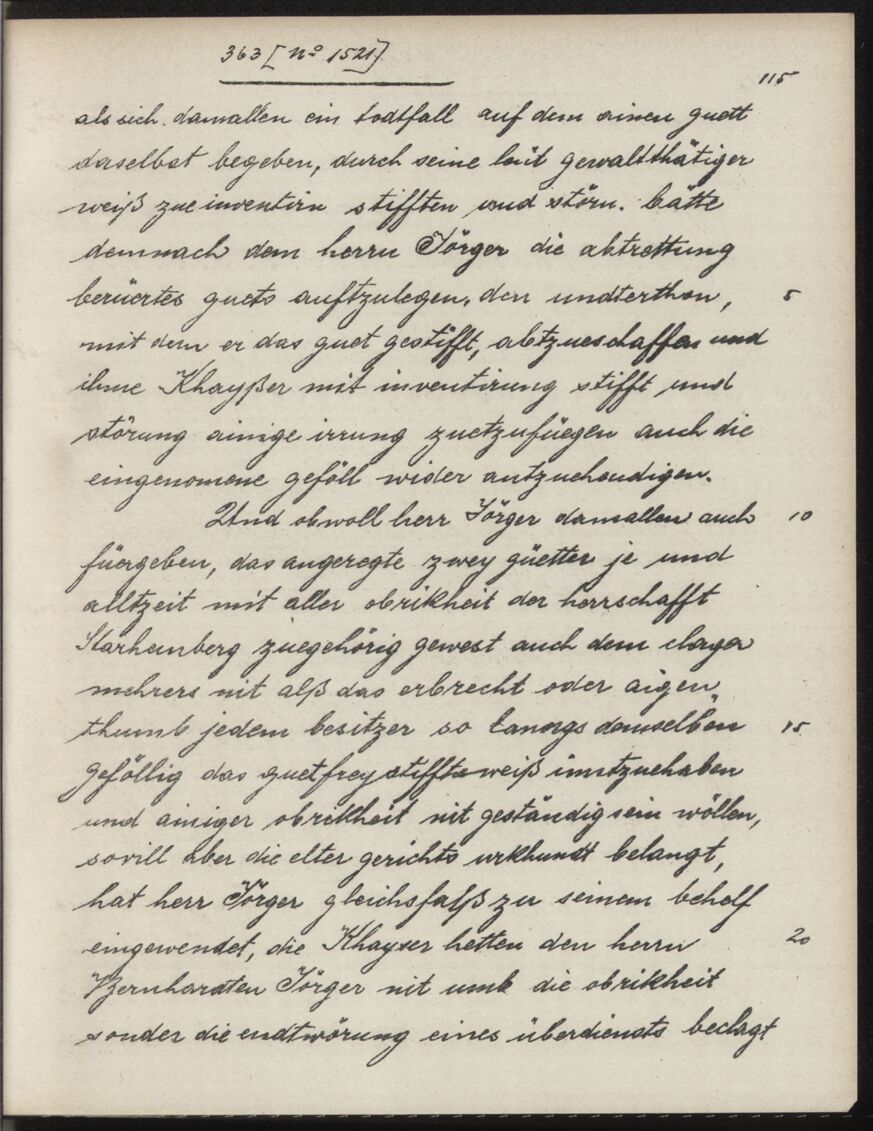 363 [No 1521]
115
als sich damallen ein todtfall auf dem ainen guett
daselbst begeben, durch seine leüt gewaltthätiger
weiß zue inventirn stifften und störn. bätte
demnach dem herrn Jörger die abtrettung
berüertes guets auftzulegen, den undterthon, 5
mit dem er das guet gestifft, abtzueschaffen und
ihme Khayßer mit inventirung stifft und
störung ainige irrung zuetzufüegen auch die
eingenomene geföll wider antzuehendigen.
Und obwoll herr Jörger damallen auch 10
füergeben, das angeregte zwey güetter je und
alltzeit mit aller obrikheit der herrschafft
Starhenberg zuegehörig gewest auch dem clager
mehrers nit alß das erbrecht oder aigen„
thumb jedem besitzer so lanngs demselben 15
geföllig das guet frey stiffts weiß inntzuehaben
und ainiger obrikheit nit geständig sein wöllen,
sovill aber die elter gerichts urkhundt belangt,
hat herr Jörger gleichsfalß zu seinem behelf
eingewendet, die Khayser hetten den herrn 20
Bernhardten Jörger nit umb die obrikheit
sonder die endtwörung eines überdiensts beclagt